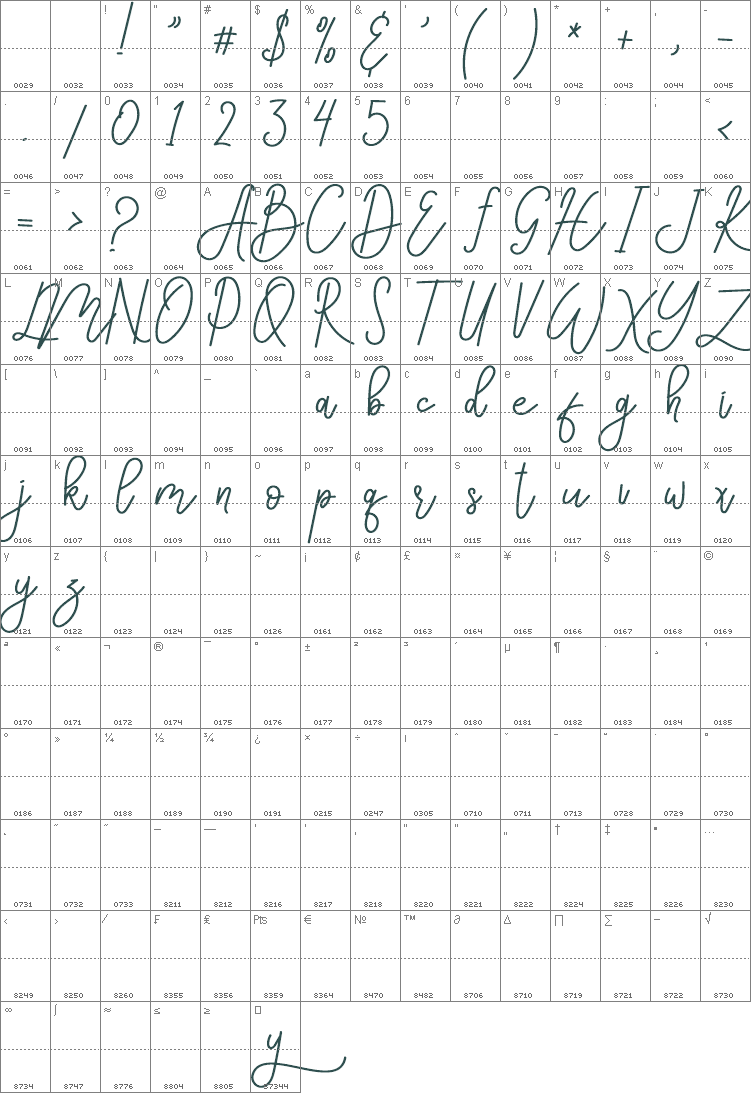 ! " # $ % & ' ( ) * + , -
! " # $ % & ' ( ) * + , -
0029 0032 0033 0034 0035 0036 0037 0038 0039 0040 0041 0042 0043 0044 0045
. / 0 1 2 3 4 5 6 7 8 9 : ; <
. / 0 1 2 3 4 5 <
0046 0047 0048 0049 0050 0051 0052 0053 0054 0055 0056 0057 0058 0059 0060
= > ? @ A B C D E F G H I J K
= > ? A B C D E F G H I J K
0061 0062 0063 0064 0065 0066 0067 0068 0069 0070 0071 0072 0073 0074 0075
L M N O P Q R S T U V W X Y Z
L M N O P Q R S T U V W X Y Z
0076 0077 0078 0079 0080 0081 0082 0083 0084 0085 0086 0087 0088 0089 0090
[ \ ] ^ _ ` a b c d e f g h i
a b c d e f g h i
0091 0092 0093 0094 0095 0096 0097 0098 0099 0100 0101 0102 0103 0104 0105
j k l m n o p q r s t u v w x
j k l m n o p q r s t u v w x
0106 0107 0108 0109 0110 0111 0112 0113 0114 0115 0116 0117 0118 0119 0120
y z { | } ~ ¡ ¢ £ ¤ ¥ ¦ § ¨ ©
y z
0121 0122 0123 0124 0125 0126 0161 0162 0163 0164 0165 0166 0167 0168 0169
ª « ¬ ® ¯ ° ± ² ³ ´ µ ¶ · ¸ ¹
0170 0171 0172 0174 0175 0176 0177 0178 0179 0180 0181 0182 0183 0184 0185
º » ¼ ½ ¾ ¿ × ÷ ı ˆ ˇ ˘ ˙ ˚
0186 0187 0188 0189 0190 0191 0215 0247 0305 0710 0711 0713 0728 0729 0730
˛ ˜ ˝ – — ' ' ‚ " " „ † ‡ • …
0731 0732 0733 8211 8212 8216 8217 8218 8220 8221 8222 8224 8225 8226 8230
‹ › ⁄ ₣ ₤ ₧ € № ™ ∂ ∆ ∏ ∑ − √
8249 8250 8260 8355 8356 8359 8364 8470 8482 8706 8710 8719 8721 8722 8730
∞ ∫ ≈ ≤ ≥
y
8734 8747 8776 8804 8805 57344